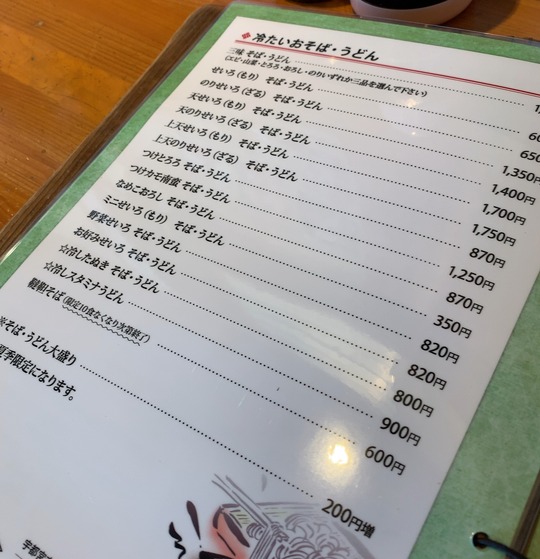 冷たいおそば・うどん
三味 そば・うどん
(エビ・山菜・とろろ・おろし・のりいずれか三品を選んで下さい)
せいろ(もり) そば・うどん
のりせいろ(ざる) そば・うどん 650
天せいろ(もり) そば・うどん 1,350円
天のりせいろ(ざる) そば・うどん 1,400円
上天せいろ(もり) そば・うどん 1,700円
上天のりせいろ(ざる) そば・うどん 1,750円
つけとろろ そば・うどん 870円
つけカモ南蛮 そば・うどん 1,250円
なめこおろし そば・うどん 870円
ミニせいろ(もり) そば・うどん 350円
野菜せいろ そば・うどん 820円
お好みせいろ そば・うどん 820円
☆冷したぬき そば・うどん 800円
☆冷しスタミナうどん 900円
韃靼そば(限定10食なくなり次第終了) 600円
※そば・うどん大盛り 200円増
夏季限定になります。